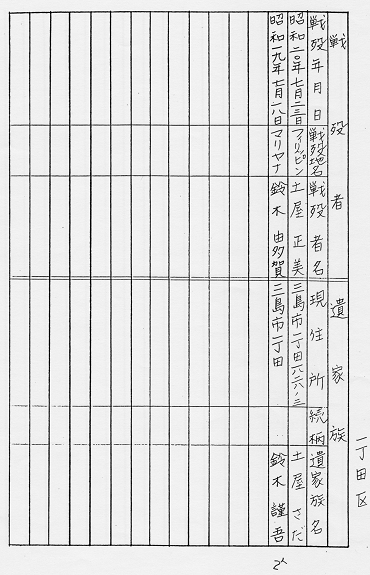 一丁田区
戦歿者 遺家族
戦歿年月日 戦歿地名 戦歿者名 現住所 続柄 遺家族名
昭和二〇年七月二三日 フィリッピン 土屋正美 三島市一丁田六二六ノ三 土屋さだ
昭和一九年七月一八日 マリヤナ 鈴木由多賀 三島市一丁田 鈴木謹吾